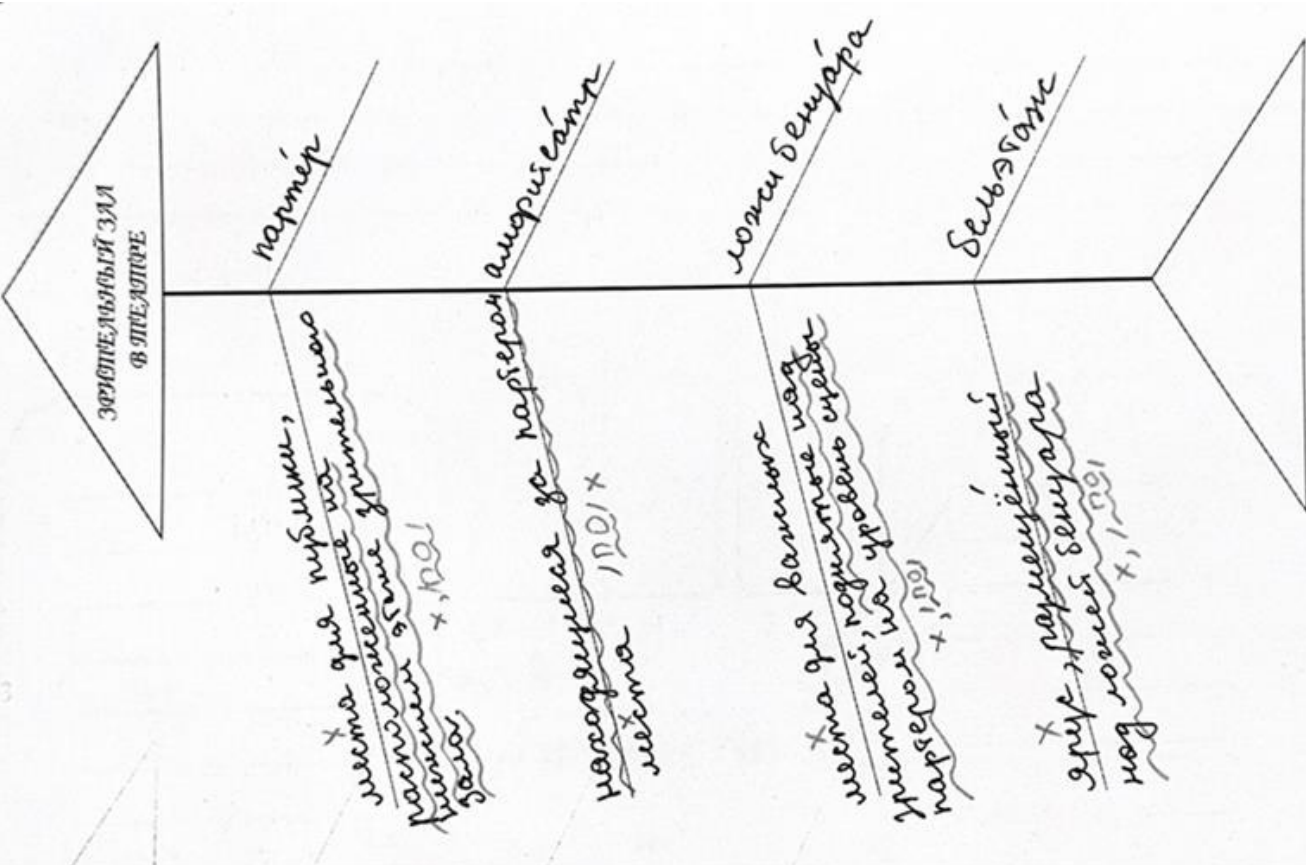 ЗРИТЕЛЬНЫЙ ЗАЛ
В ТЕАТРЕ
партéр
места для публики,
расположенные на
нижнем этаже зрительного
зала.
х, |ПО|
амфитеáтр
находящиеся за партером
места
, |ПО| х
ложи бенуáра
места для важных
зрителей, поднятые над
партером на уровень сцены
х, |ПО|
бельэтáж
ярус, размещённый
над ложей бенуара
х, |ПО|